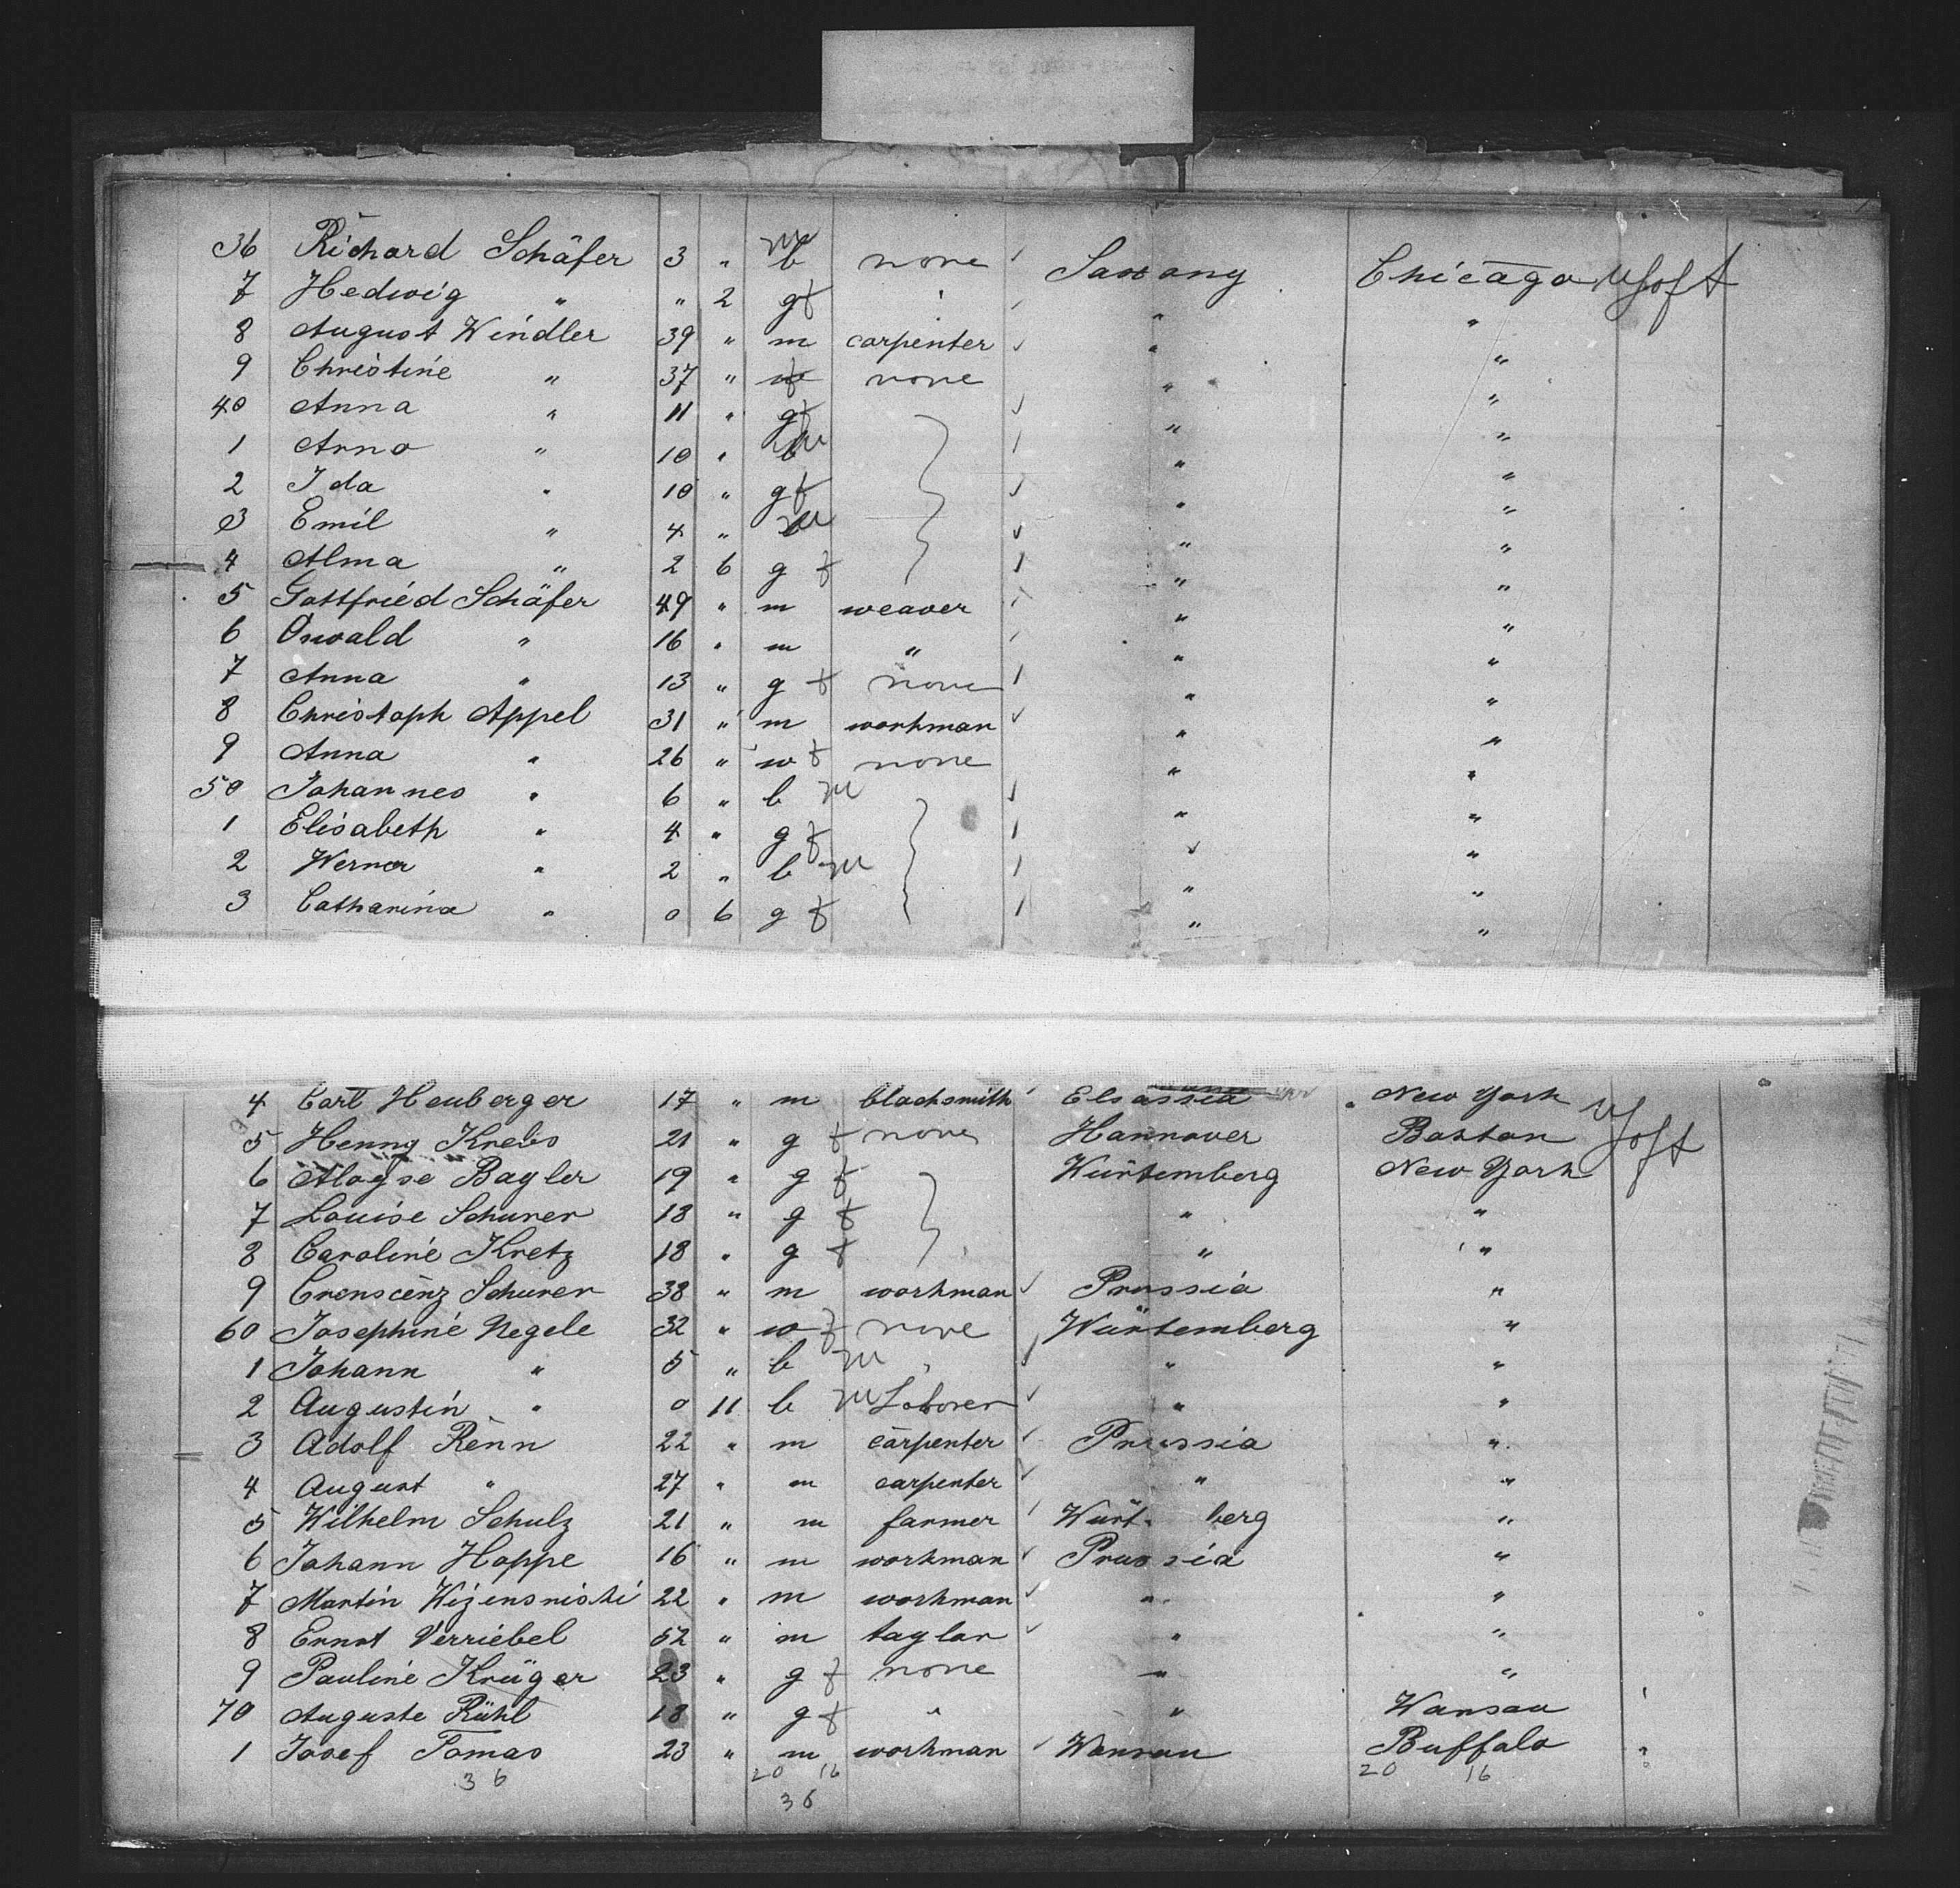 36 Richard Schäfer 3 " b m none Saxony Chicago Usoft
7 Hedwig " " 2 g f " "
8 August Windler 39 " m carpenter " "
9 Christine " 37 " w f none " "
40 Anna " 11 " g f " "
1 Arno " 10 " b m " "
2 Ida " 10 " g f " "
3 Emil " 4 " m " "
4 Alma " 2 6 g f " "
5 Gottfried Schäfer 49 " m weaver " "
6 Oswald " 16 " m " " "
7 Anna " 13 " g f none " "
8 Christoph Appel 31 " m workman " "
9 Anna " 26 " w f none " "
50 Johannes " 6 " b m " "
1 Elisabeth " 4 " g f " "
2 Werner " 2 " b m " "
3 Catharina " 0 6 g f " "
4 Carl Heuberger 17 " m blacksmith Elsassia New York
5 Henny Krebs 21 " g f none Hannover Boston Usoft
6 Aloyse Bayler 19 " g f Würtemberg New York
7 Louise Schurer 18 " g f " "
8 Caroline Kretz 18 " g f " "
9 Crenscenz Schurer 38 " m workman Prussia "
60 Josephine Negele 32 " w f none Würtemberg "
1 Johann " 5 " b m " " "
2 Augustin " 0 11 b m Laborer " "
3 Adolf Renn 22 " m carpenter Prussia "
4 August " 27 " m carpenter " "
5 Wilhelm Schulz 21 " m farmer Würt berg "
6 Johann Hoppe 16 " m workman Prussia "
7 Martin 22 " m workman " "
8 Ernst Verriebel 52 " m taylor " "
9 Pauline Krüger 23 " g f none " "
70 Auguste Rühl 18 " g f " " Wansau
1 Josef Tomas 23 " m workman Wansau Buffalo "
36 20 16 20 16
36